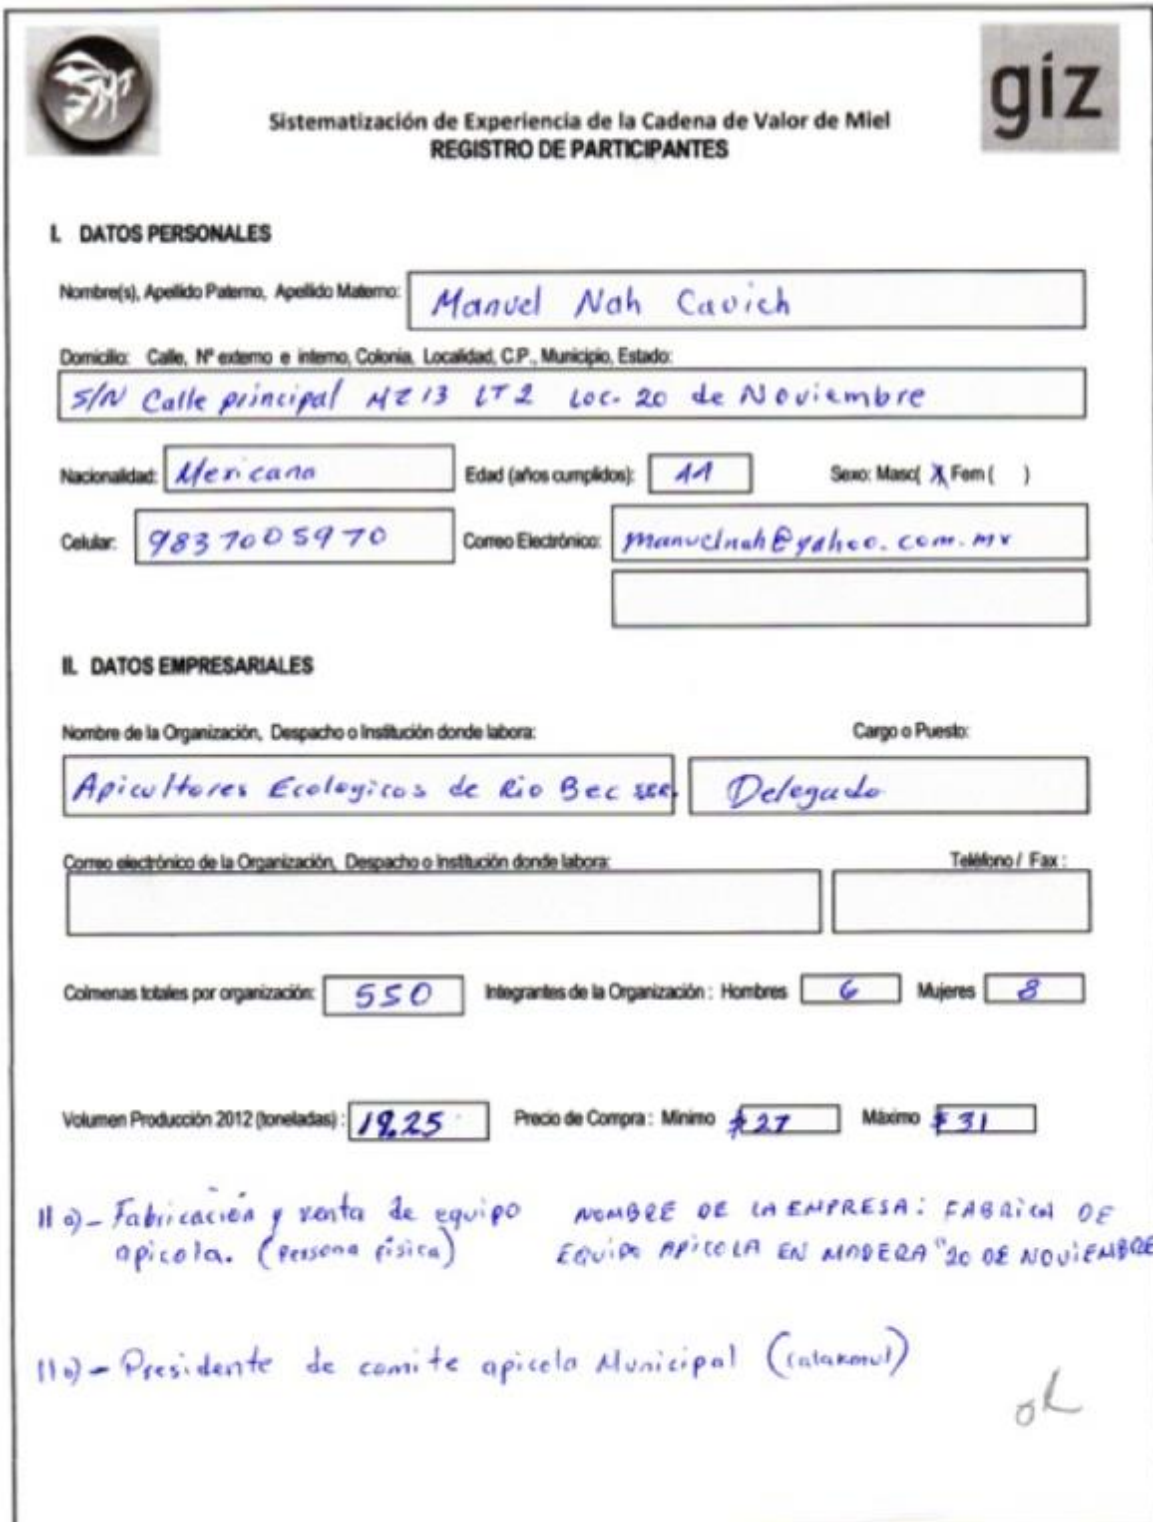 giz
Sistematización de Experiencia de la Cadena de Valor de Miel
REGISTRO DE PARTICIPANTES
I. DATOS PERSONALES
Nombre(s), Apellido Paterno, Apellido Materno: Manuel Nah Cauich
Domicilio: Calle, Nº externo e interno, Colonia, Localidad, C.P., Municipio, Estado:
S/N Calle principal MZ 13 LT 2 Loc. 20 de Noviembre
Nacionalidad: Mexicana Edad (años cumplidos): 44 Sexo: Masc( X Fem ( )
Celular: 9837005970 Correo Electrónico: manuelnah@yahoo.com.mx
II. DATOS EMPRESARIALES
Nombre de la Organización, Despacho o Institución donde labora: Cargo o Puesto:
Apicultores Ecologicos de Rio Bec Delegado
Correo electrónico de la Organización, Despacho o Institución donde labora: Teléfono / Fax :
Colmenas totales por organización: 550 Integrantes de la Organización : Hombres 6 Mujeres 8
Volumen Producción 2012 (toneladas) : 19.25 Precio de Compra : Minimo $27 Máximo $31
II a)- Fabricación y venta de equipo NOMBRE DE LA EMPRESA: FABRICA DE
apicola. (persona fisica) EQUIPO APICOLA EN MADERA "20 DE NOVIEMBRE
II b)- Presidente de comite apicola Municipal (calakmul)
ok